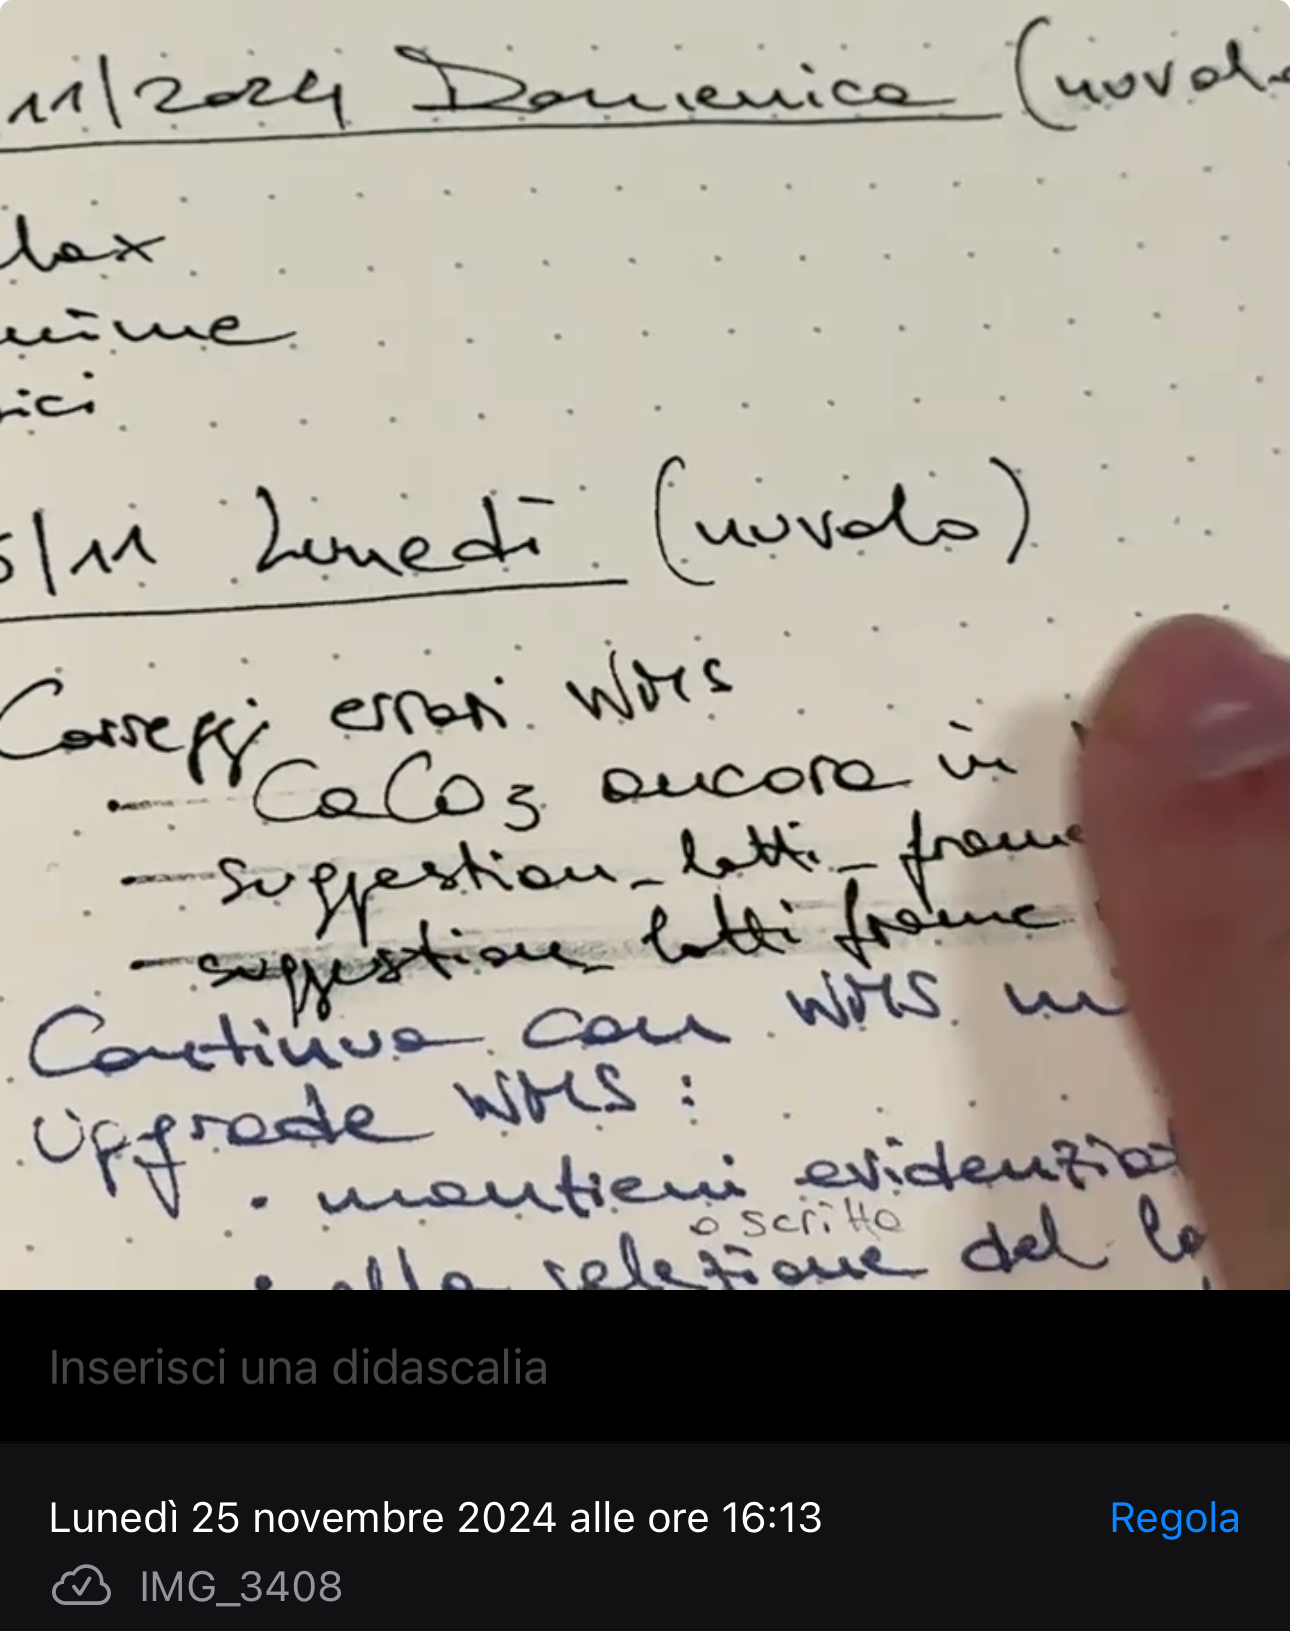 11/2024 Domenica (nuvolo
lax
nime
ici
5/11 Lunedì (nuvolo)
Correggi errori WMS
- CaCO3 ancora in
- suggestion_lotti_frame
- suggestion_lotti frame
Continua con WMS
Upgrade WMS:
• mantieni evidenziat
o scritto
• alla selezione del lo
Inserisci una didascalia
Lunedì 25 novembre 2024 alle ore 16:13
Regola
IMG_3408